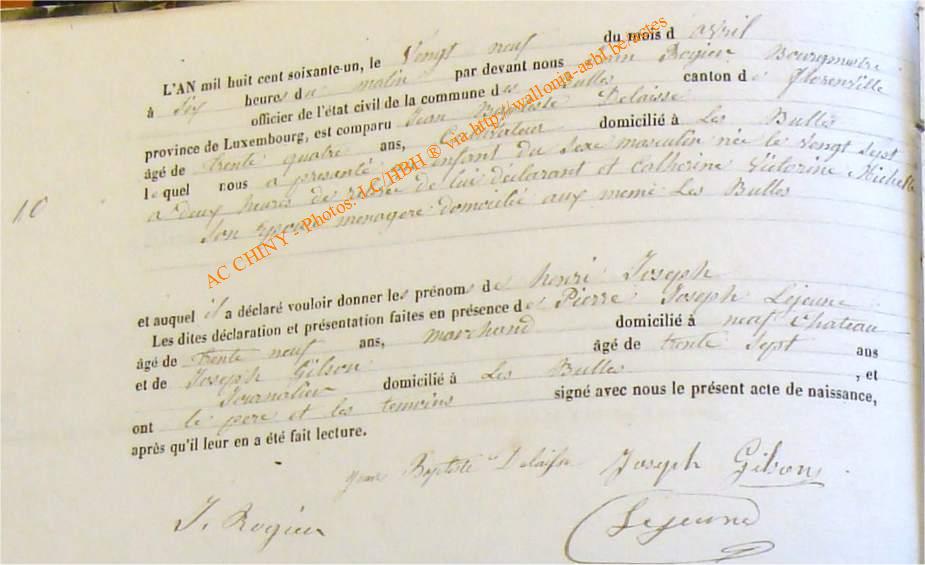 L'AN mil huit cent soixante-un, le Vingt neuf du mois d avril
à Six heures du matin par devant nous Rogier Bourgmestre
officier de l'état civil de la commune des Bulles canton de Florenville
province de Luxembourg, est comparu Jean Baptiste Delaisse
âgé de trente quatre ans, Cultivateur domicilié à Les Bulles
lequel nous a présenté enfant du Sexe masculin née le Vingt Sept
a deux heures de de lui déclarant et Catherine Victorine Michelle
Son Epouse menagere domicilié aux meme Les Bulles
10
et auquel il a déclaré vouloir donner les prénoms de henri Joseph
Les dites déclaration et présentation faites en présence de Pierre Joseph Lejeune
âgé de trente neuf ans, marchand domicilié à neuf Chateau
et de Joseph Gilson âgé de trente Sept ans
Journalier domicilié à Les Bulles , et
ont le pere et les temoins signé avec nous le présent acte de naissance,
après qu'il leur en a été fait lecture.
Jean Baptiste Delaisse Joseph Gilson
J. Rogier Lejeune
AC CHINY - Photos: LC/HBH ® via http://wallonia-asbl.be/actes